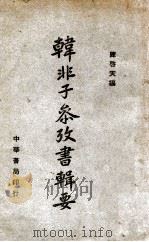 陳啓天編
韓非子參攷書輯要
中華書局印行